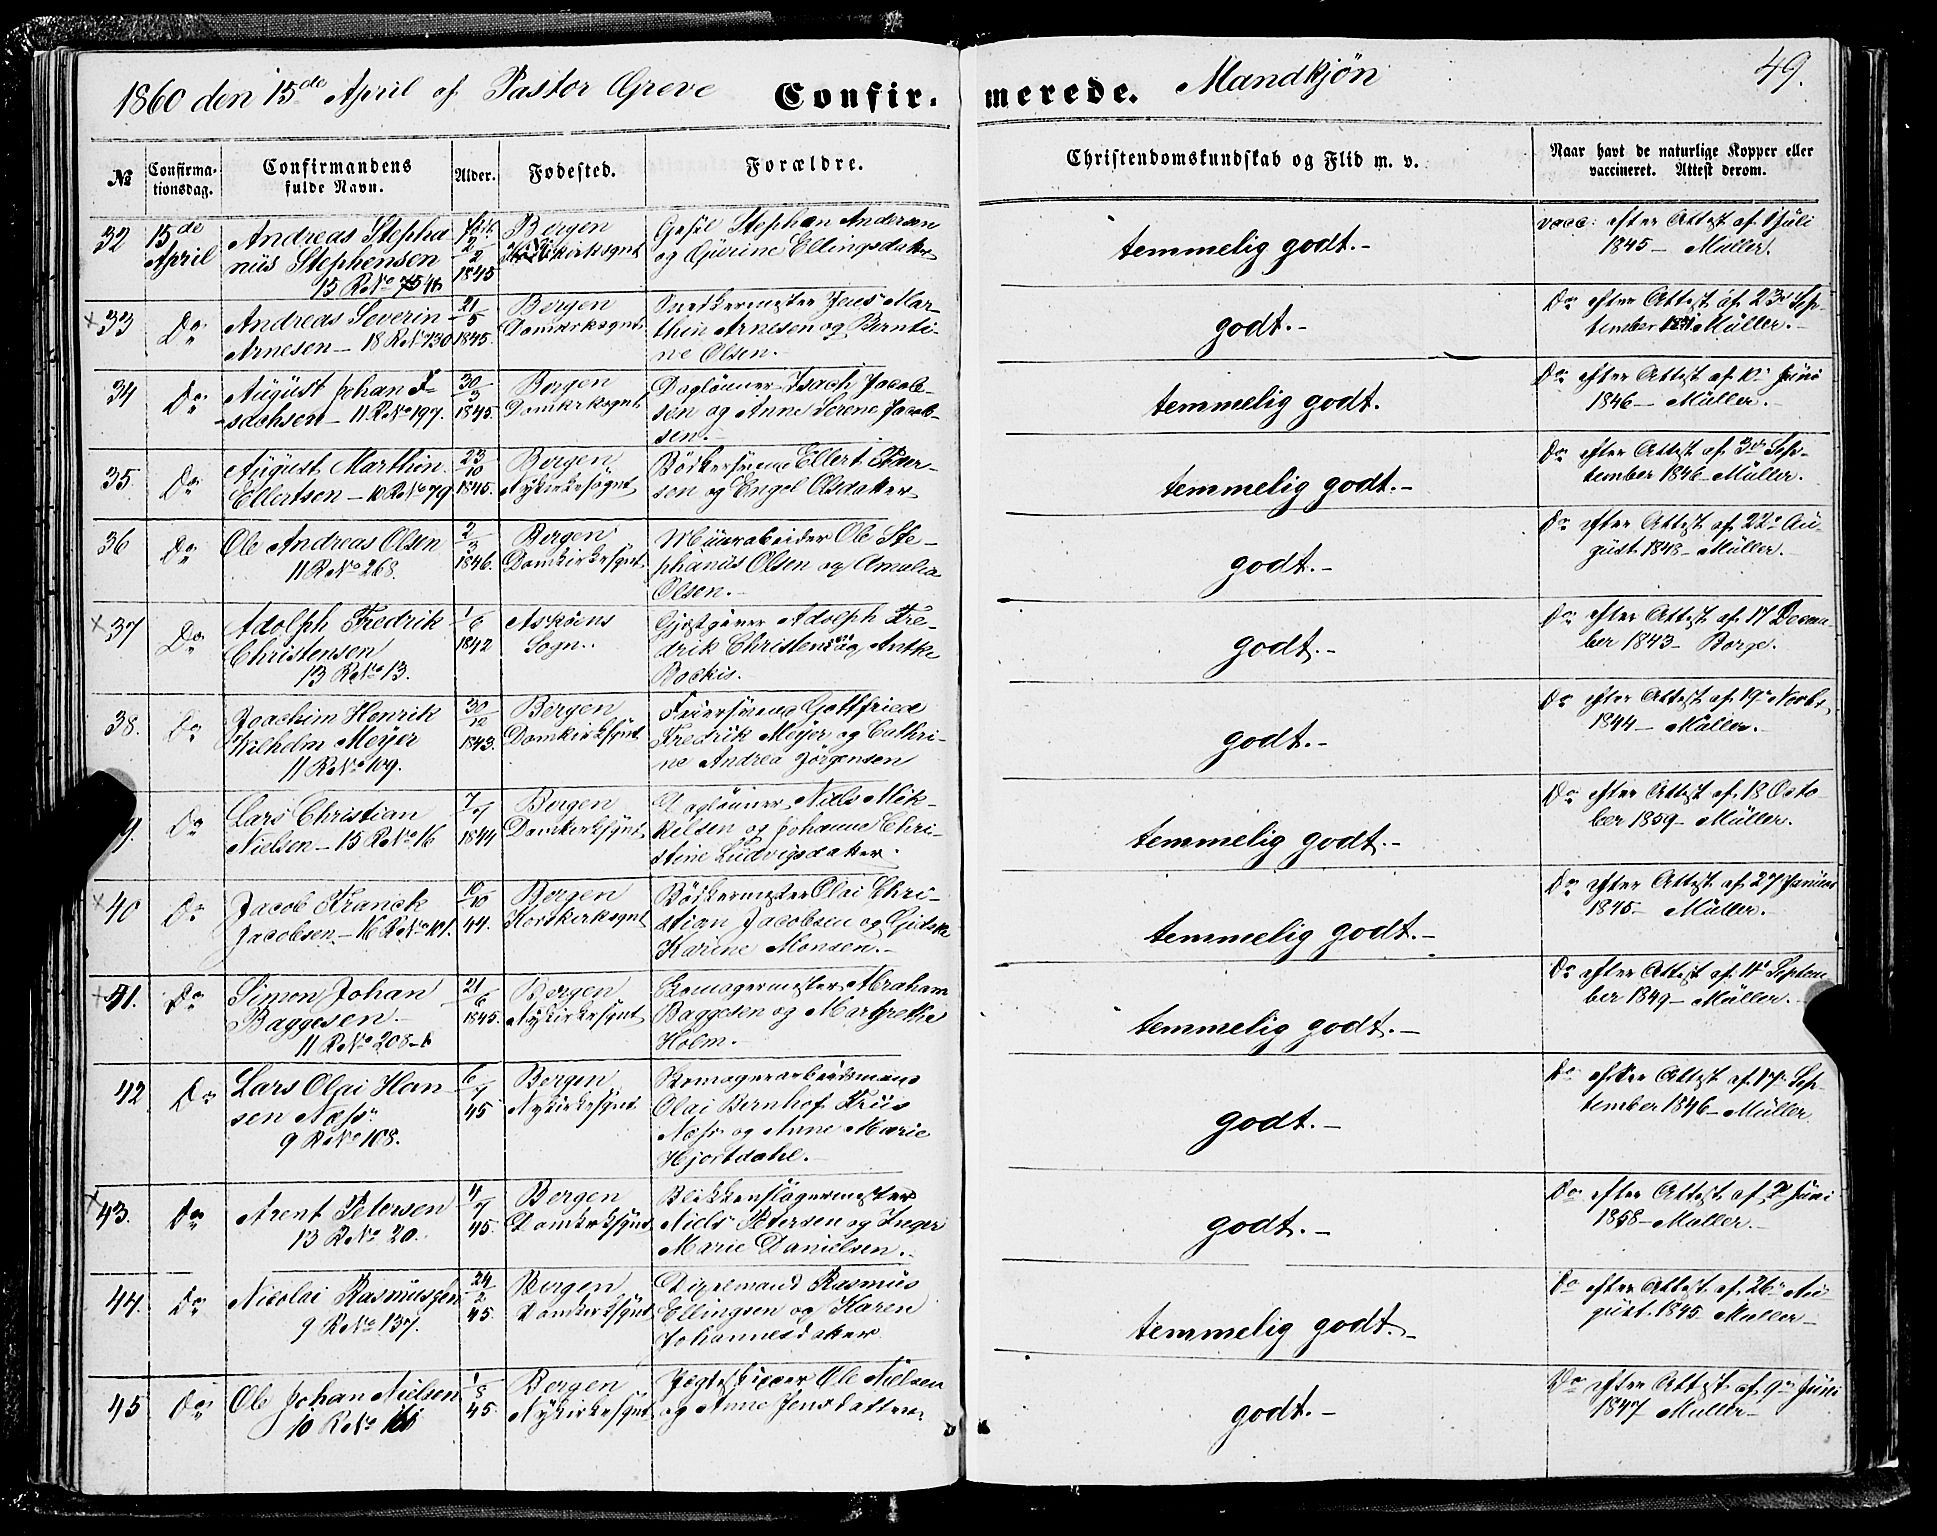 1860 den 15de April af Pastor Greve Confir- merede. Mandkjøn 49.
No Confirma-tionsdag. Confirmandens fulde Navn. Alder. Fødested. Forældre. Christendomskundskab og Flid m. v. Naar havt de naturlige Kopper eller vaccineret. Attest derom.
32 15de April
Andreas Stepha
nus Stephensen
15 R No
2/2 1845
Bergen
Stephan Andersen
og Gurine Ellingsdatter
temmelig godt.-
vacc: efter Attest af Juli
1845- Müller.
33 Do
Andreas Severin
Arnesen- 18 R No 730
21/5 1845.
Bergen
Domkirkesognet
Snedkermester Jens Mar-
thin Arnesen og Bernti-
ne Olsen.-
godt.-
Do efter Attest af 23 Sep-
tember Müller.-
34 Do
August Johan I-
sachsen- 11 R No 197.
30/3 1845.
Bergen
Domkirksognet
Daglønner Isach Jacob-
sen og Anne Serene Jacob-
sen.-
temmelig godt.
Do efter Attest af Juni
1846- Müller.-
35. Do
August Marthin
Ellertsen- 10 R No 79
23/10 1845.
Bergen
Nykirkesognet
Bødkersvend Ellert
sen og Engel Olsdatter
temmelig godt.-
Do efter Attest af 3de Sep-
tember 1846- Müller.
36 Do
Ole Andreas Olsen
11 R No 268.
2/3 1846.
Bergen
Domkirkesognet
Muurarbeider Ole Ste-
phanus Olsen og Amalia
Olsen.-
godt.-
Do efter Attest af 22 Au-
gust 1848- Müller.-
37 Do
Adolph Fredrik
Christensen
13 R No 13.
1/6 1842
Askøens
Sogn..
Gjæstgiver Adolph Fre-
drik Christensen og Antke
Backis.
godt.-
Do efter Attest af 17 Decem-
ber 1843- Borge.
38. Do
Joachim Henrik
Wilhelm Meyer
11 R No 109.
30/12 1843.
Bergen
Domkirkesognet
Feiersvend Gottfried
Fredrik Meyer og Cathri-
ne Andrea Jørgensen
godt.-
Do efter Attest af 19 Novbr.
1844- Müller.-
9. Do
Lars Christian
Nielsen- 15 R No 16
7/7 1844
Bergen
Domkirkesognet
Daglønner Niels Mik-
kelsen og Johanne Chri-
stine Ludvigsdatter.
temmelig godt.-
Do efter Attest af 18 Octo-
ber 1859- Müller.
40 Do
Jacob Franck
Jacobsen- 16 R No 101.
10/10 44.
Bergen
Korskirksognet
Bødkermester Olai Chri-
stian Jacobsen og Gidske
Karine Monsen.-
temmelig godt.-
Do efter Attest af 27 Januar
1845- Müller.-
41. Do
Simon Johan
Baggesen.-
11 R No 208-b
21/6 1845.
Bergen
Nykirkesognet
Skomagermester Abraham
Baggesen og Margrethe
Holm.-
temmelig godt.-
Do efter Attest af Septem
ber 1849- Müller.-
42 Do
Lars Olai Han
sen Næss.
9 R No 108.
6/7 45
Bergen
Nykirkesognet
Skomagerarbeidsmand
Olai Bernhof Friis
Næss og Anne Marie
Hjortdahl.-
godt.-
Do efter Attest af 17 Sep-
tember 1846- Müller.
43. Do
Arent Petersen
13 R No 20.
4/7 45.
Bergen
Domkirkesognet
Blikkenslagermester
Niels Petersen og Inger
Marie Danielsen.-
godt.-
Do efter Attest af Juni
1858- Müller.-
44. Do
Nicolai Rasmussen
9 R No 137.
24/2 45.
Bergen
Domkirkesognet
Rasmus
Ellingsen og Karen
Johannesdatter
temmelig godt.-
Do efter Attest af 26 Au-
gust 1845 Müller-
45 Do
Ole Johan Nielsen
10 R No
1/5 45.
Bergen
Nykirkesognet
Jægteskipper Ole Nielsen
og Anne Jensdatter.
godt.-
Do efter Attest af 9 Juni
1847 Müller-